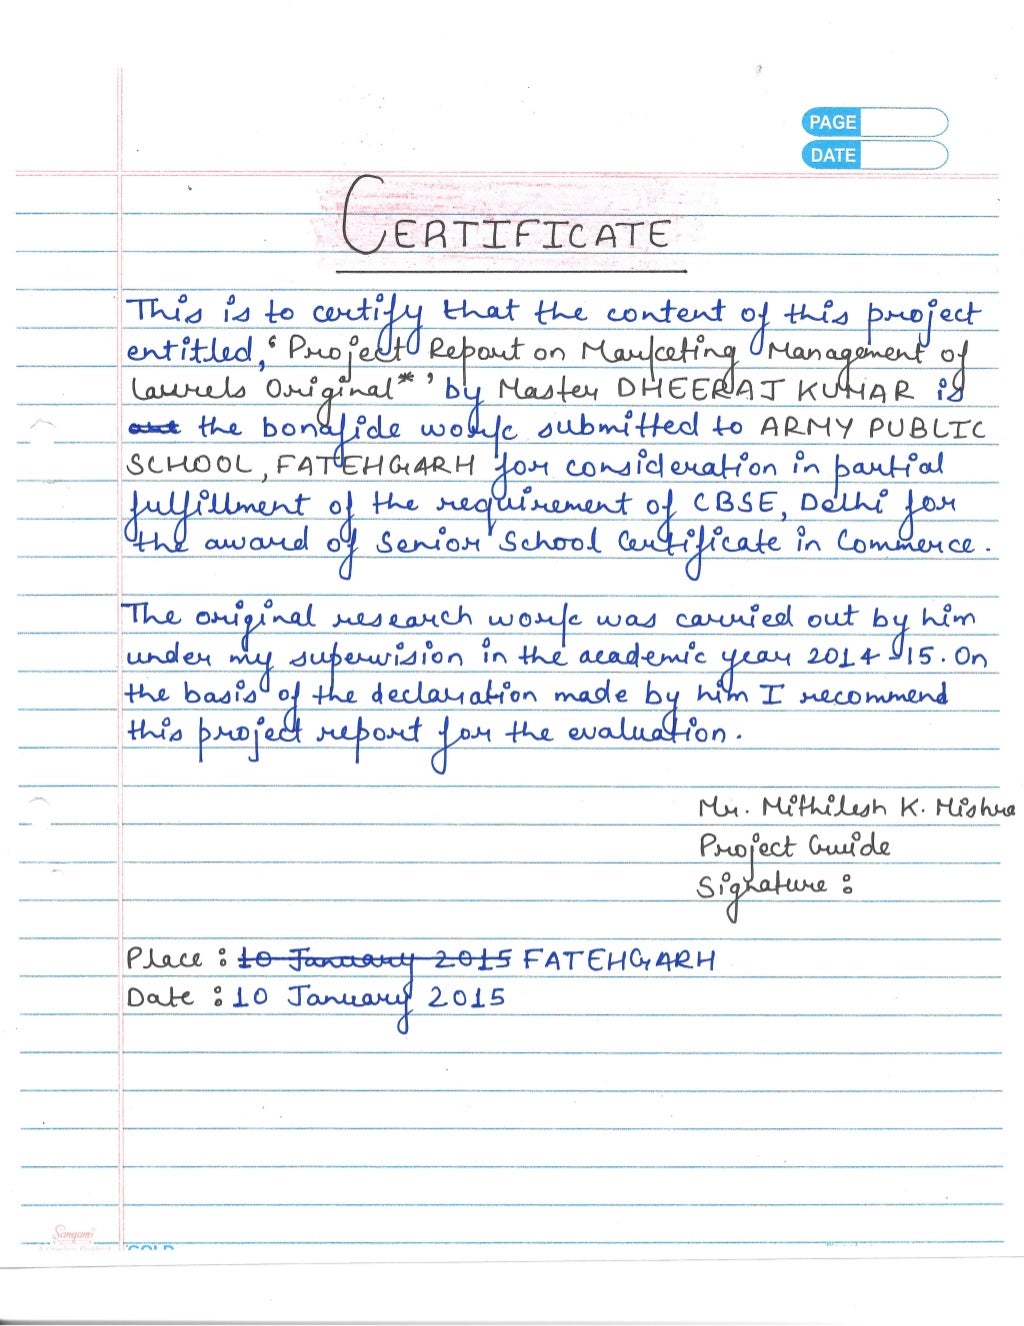 PAGE
DATE
CERTIFICATE
This is to certify that the content of this project
entitled, ‘Project Report on Marketing Management of
Laurels Original*’ by Master DHEERAJ KUMAR is
the bonafide work submitted to ARMY PUBLIC
SCHOOL, FATEHGARH for consideration in partial
fulfillment of the requirement of CBSE, Delhi for
the award of Senior School Certificate in Commerce.
The original research work was carried out by him
under my supervision in the academic year 2014-15. On
the basis of the declaration made by him I recommend
this project report for the evaluation.
Mr. Mithilesh K. Mishra
Project Guide
Signature :
Place : 10 January 2015 FATEHGARH
Date : 10 January 2015
Sangam
GOLD